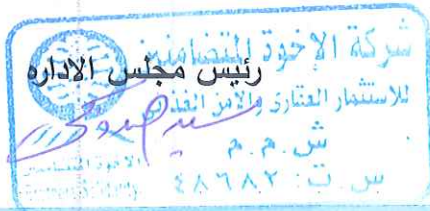 شركة الاخوة المتضامنين
رئيس مجلس الاداره
للاستثمار العقارى والامن الغذائى
ش . م . م
س . ت : ٤٨٦٨٢